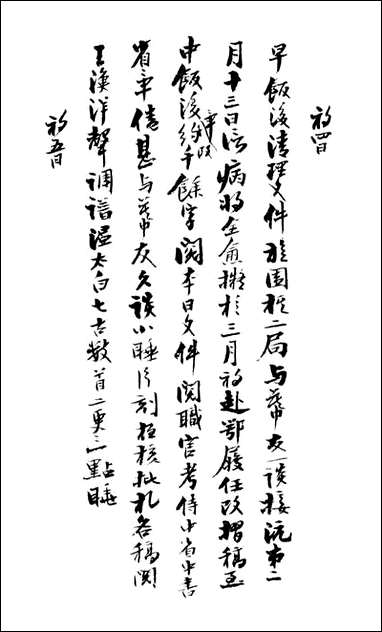 初四日
早飯後清理文件旋圍棋二局與幕友一談接沅弟二
月十三日信病將全愈擬於三月初赴鄂履任改摺稿至
中飯後畢改約千餘字閱本日文件閱職官考侍中省中書
省畢倦甚與幕友久談小睡片刻核批札各稿閱
王漁洋聲調譜溫太白七古數首二更三點睡
初五日